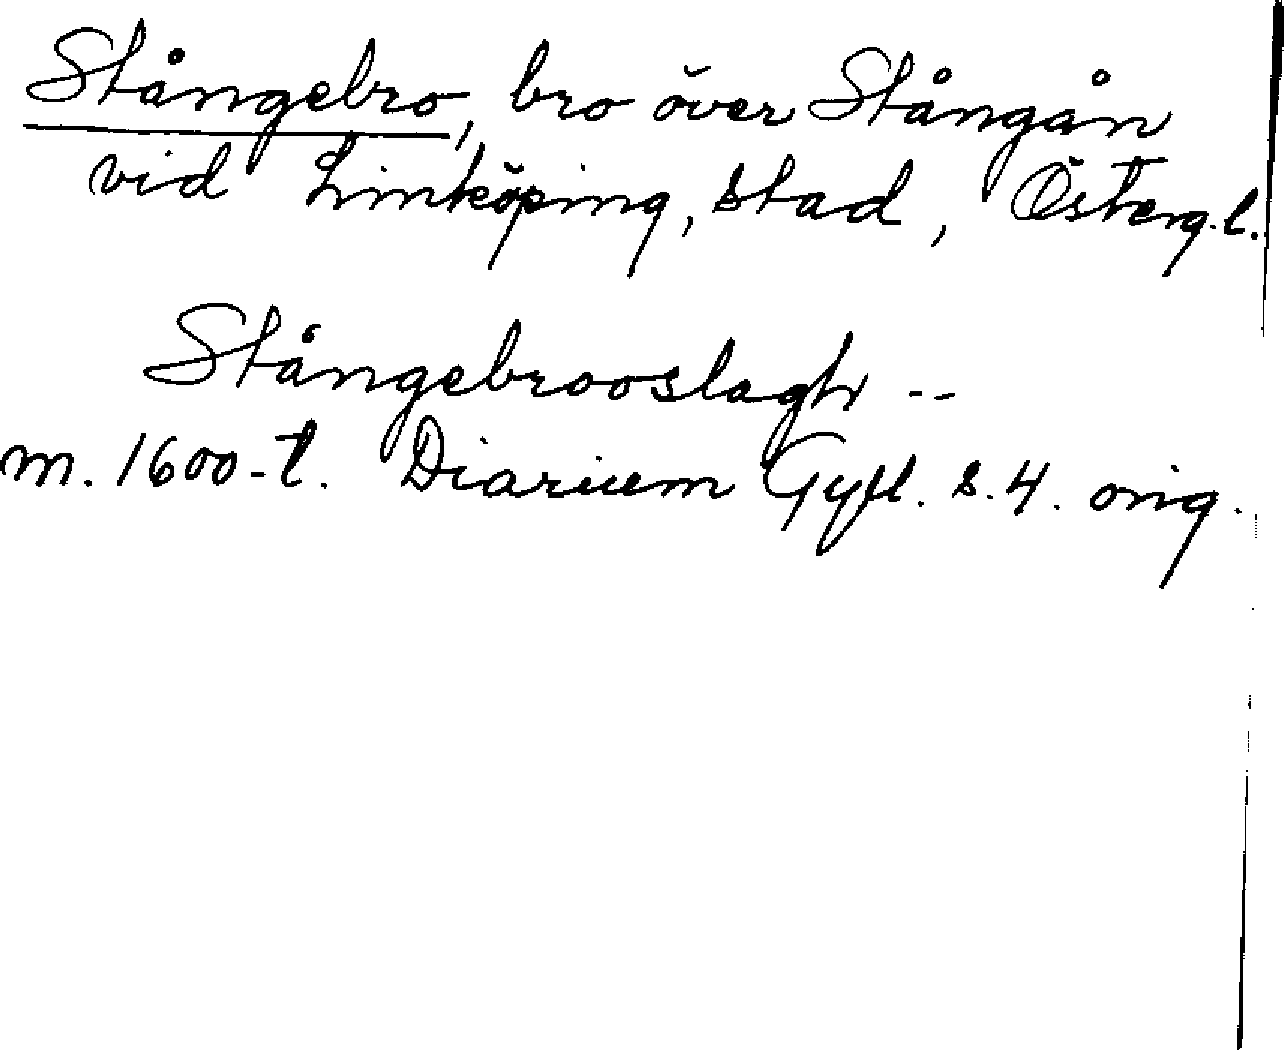 Stångebro, bro över Stångån
vid Linköping, stad, Österg.l.
Stångebrooslagh --
m. 1600-t. Diarium Gyll. s. 4. orig.